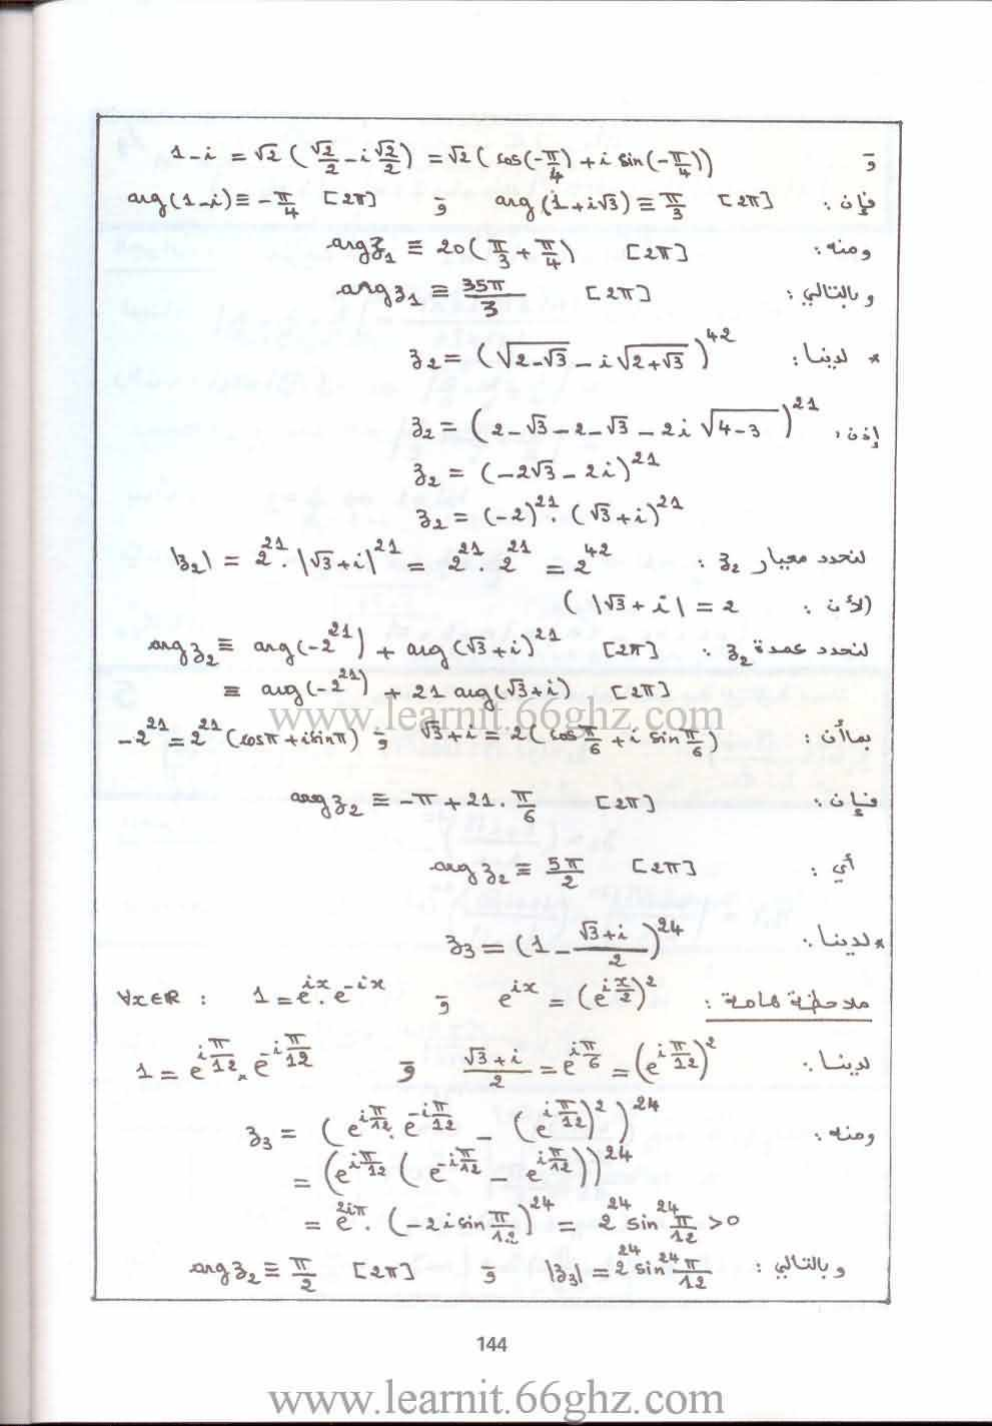 و 1-i = √2 (√2/2 - i √2/2) = √2 ( cos(-π/4) + i sin(-π/4))
فإن : arg(1+i√3) ≡ π/3 [2π] و arg(1-i) ≡ -π/4 [2π]
ومنه : arg z₁ ≡ 20(π/3 + π/4) [2π]
وبالتالي : arg z₁ ≡ 35π/3 [2π]
* لدينا : z₂ = (√(2-√3) - i√(2+√3))^42
إذن ، z₂ = (2-√3-2-√3-2i √(4-3))^21
z₂ = (-2√3-2i)^21
z₂ = (-2)^21 . (√3+i)^21
لنحدد معيار z₂ : |z₂| = 2^21 . |√3+i|^21 = 2^21 . 2^21 = 2^42
(لأن : |√3+i| = 2)
لنحدد عمدة z₂ : arg z₂ ≡ arg(-2^21) + arg(√3+i)^21 [2π]
≡ arg(-2^21) + 21 arg(√3+i) [2π]
www.learnit.66ghz.com
بما أن : √3+i = 2(cos π/6 + i sin π/6) و -2^21 = 2^21 (cosπ + i sinπ)
فإن : arg z₂ ≡ -π + 21 . π/6 [2π]
أي : arg z₂ ≡ 5π/2 [2π]
* لدينا : z₃ = (1 - (√3+i)/2)^24
ملاحظة هامة : e^(ix) = (e^(i x/2))^2 و 1 = e^(ix) . e^(-ix) ∀x∈ℝ :
لدينا : (√3+i)/2 = e^(i π/6) = (e^(i π/12))^2 و 1 = e^(i π/12) × e^(-i π/12)
ومنه : z₃ = (e^(i π/12) . e^(-i π/12) - (e^(i π/12))^2)^24
= (e^(i π/12) (e^(-i π/12) - e^(i π/12)))^24
= e^(2iπ) . (-2i sin π/12)^24 = 2^24 sin^24 π/12 > 0
وبالتالي : |z₃| = 2^24 sin^24 π/12 و arg z₂ ≡ π/2 [2π]
144
www.learnit.66ghz.com